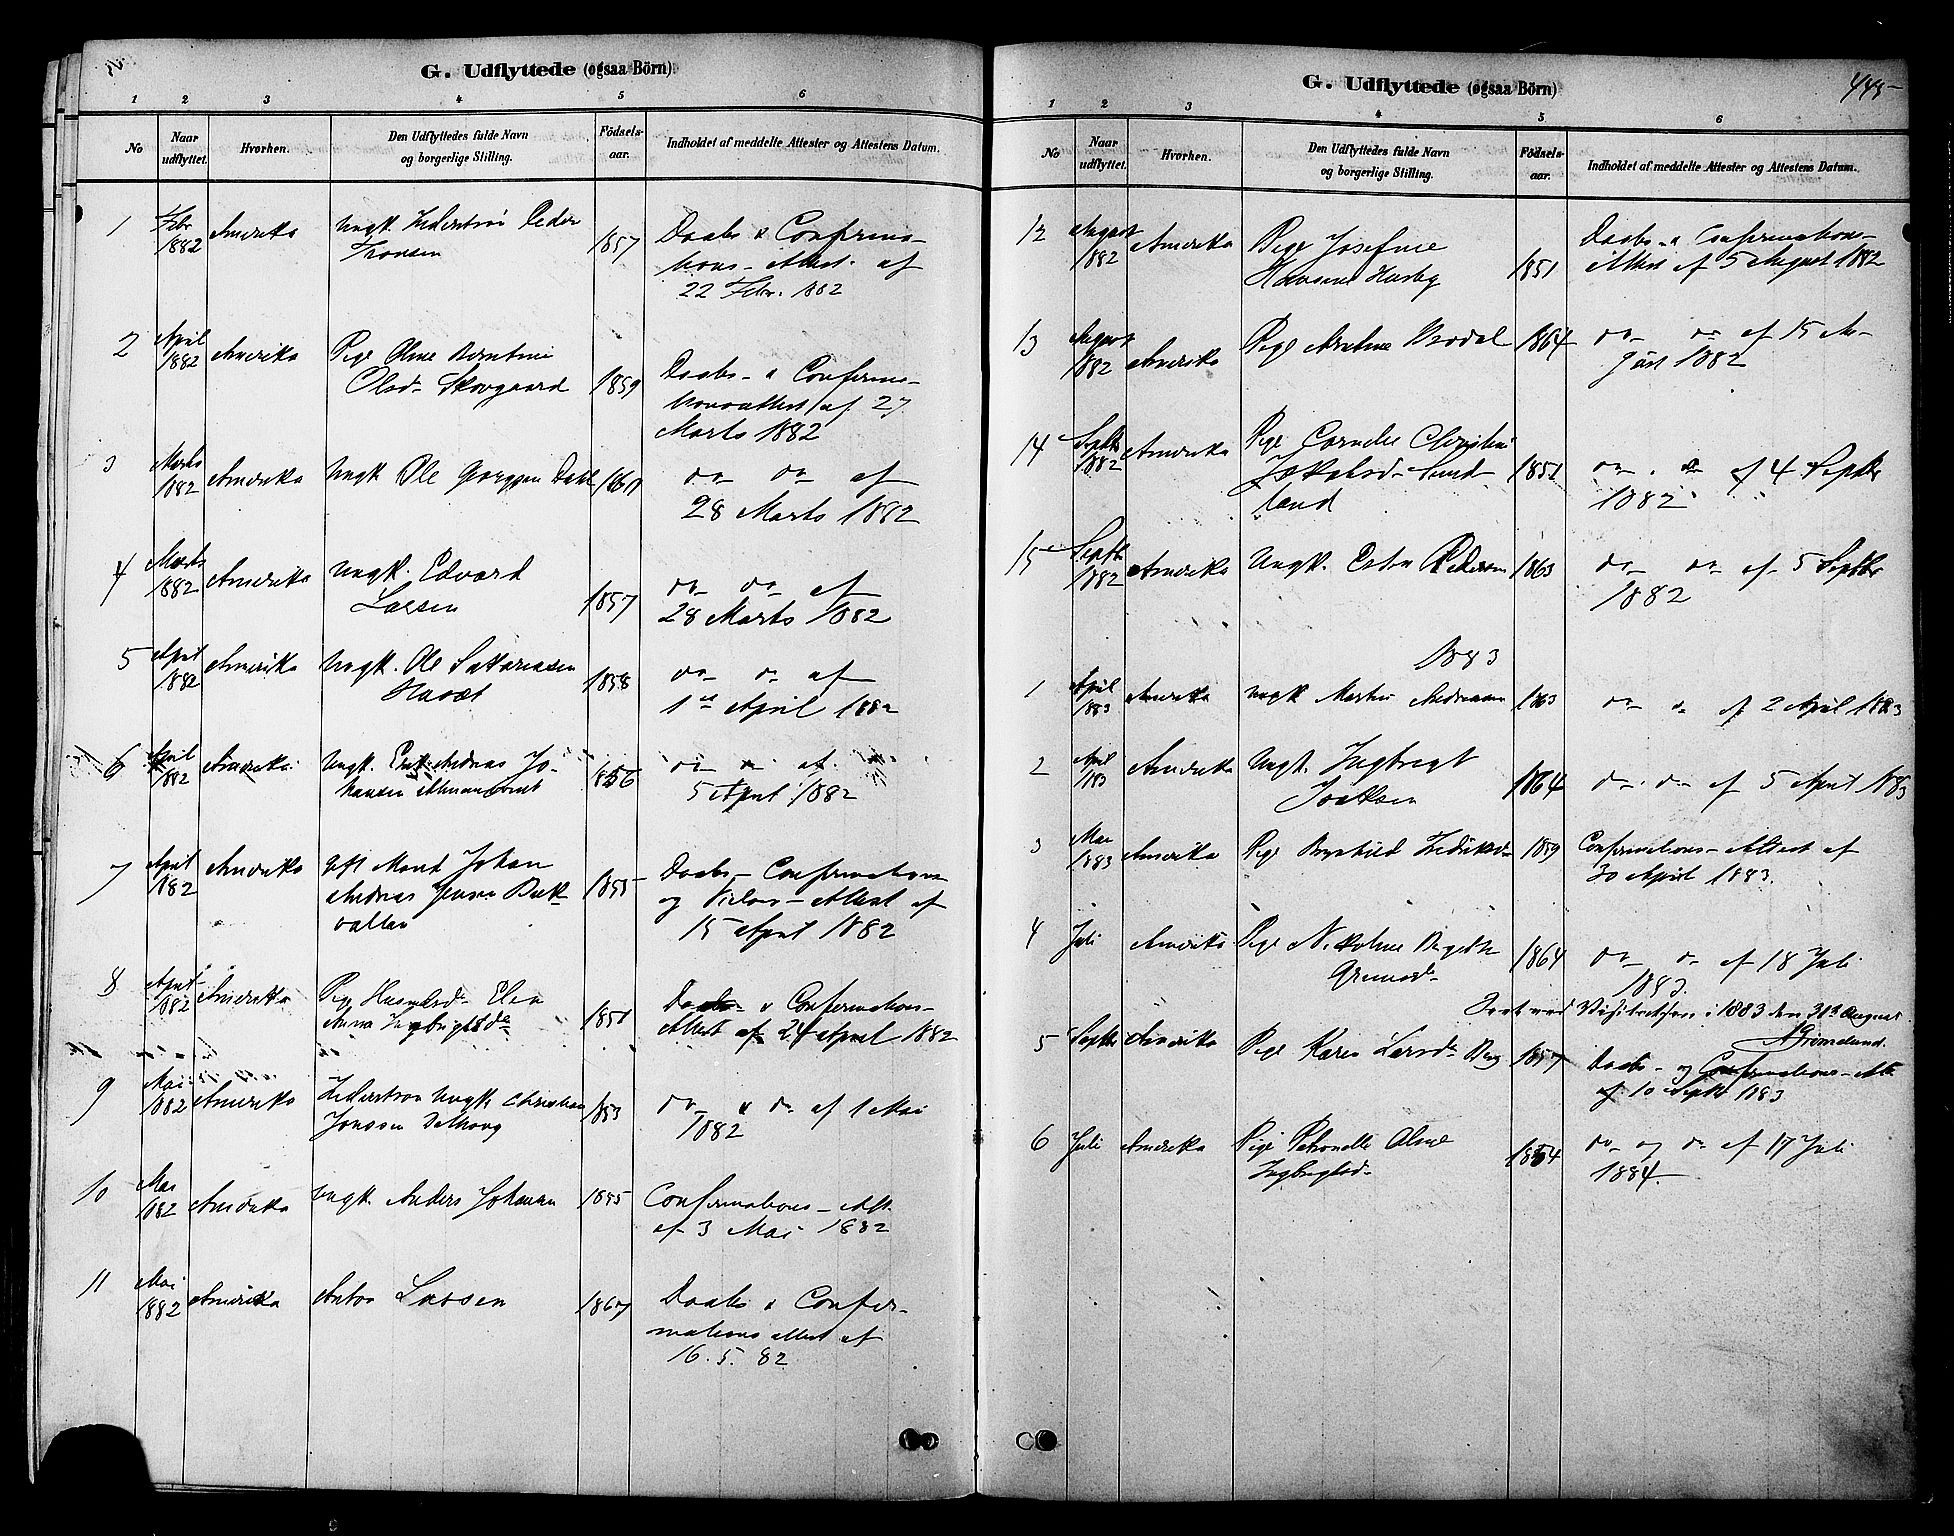 G. Udflyttede (ogsaa Börn)
1 2 3 4 5 6
No
Naar udflyttet.
Hvorhen.
Den Udflyttedes fulde Navn og borgerlige Stilling.
Födsels-aar.
Indholdet af meddelte Attester og Attestens Datum.
1 Febr 1882 Amerika Ungk. Inderströi Peder 1857 Daabs & Confirma-
tions-Attest af
22 Febr. 1882
2 April 1882 Amerika Pige Oline Berntine
Olsd. Skavgaard 1859 Daabs- & Confirma-
tionsattest af 27
Marts 1882
3 Marts 1882 Amerika Ungk Ole Dahl do do af
28 Marts 1882
4 Marts 1882 Amerika Ungk. Edvard
Larsen 1857 do do af
28 Marts 1882
5 April 1882 Amerika Ungk. Ole
1858 do do af
1st April 1882
6 April 1882 Amerika Ungk. Andreas Jo-
hansen 1856 do af
5 April 1882
7 April 1882 Amerika gift Mand Johan
Andreas Jensen Bak-
vollan 1855 Daabs- Confirmations
og Vielses-Attest af
15 April 1882
8 April 1882 Amerika Pige Elen
Anna Ingbrigtsd. 1851 Daabs & Confirmations-
Attest af 24 April 1882
9 Mai 1882 Amerika Ungk Christian
Jonssen 1853 do & do af 1 Mai
1882
10 Mai 1882 Amerika Ungk. Anders Johansen 1855 Confirmations-Att.
af 3 Mai 1882
11 Mai 1882 Amerika Anton Larsen 1867 Daabs & Confir-
mations attest af
16. 5. 82
G. Udflyttede (ogsaa Börn)
445
1 2 3 4 5 6
No
Naar udflyttet.
Hvorhen.
Den Udflyttedes fulde Navn og borgerlige Stilling.
Födsels-aar.
Indholdet af meddelte Attester og Attestens Datum.
12 August 1882 Amerika Pige Josefine
Husby 1851 Daabs- & Confirmations-
Attest af 5 August 1882
13 August 1882 Amerika Pige 1864 do do af 15 Au-
gust 1882
14 Septbr 1882 Amerika Pige Cornelie Christine
Jakobsd. Sund-
land 1851 do & do af 4 Septbr
1882
15 Septbr 1882 Amerika Ungk. Pedersen 1863 do do af 5 Septbr
1882
1883
1 April 1883 Amerika Ungk Martin Andreassen 1863 do do af 2 April 1883
2 April 1883 Amerika Ungk. Ingbrigt
1864 do do af 5 April 1883
3 Mai 1883 Amerika Pige Fredriksd. 1859 Confirmations-Attest af
30 April 1883.
4 Juli Amerika Pige Nikoline
1864 do do af 18 Juli
1883
Seet ved Visitatsen i 1883 den 31te August
5 Septbr Amerika Pige Karen Larsd. Berg 1857 Daabs- og Confirmations-Att.
af 10 Septbr 1883
6 Juli Amerika Pige Petronelle Oline
Ingbrigtsd. do og do af 17 Juli
1884